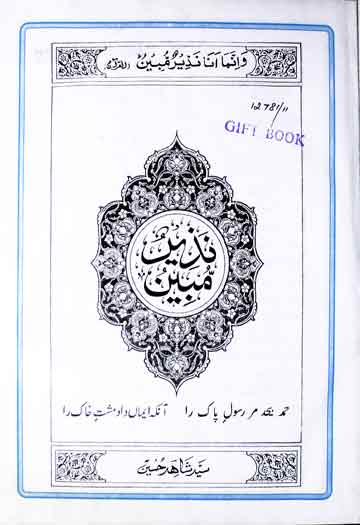 وَاِنَّمَا اَنَا نَذِيْرٌ مُّبِيْنٌ (القرآن)
12781/11
GIFT BOOK
نَذِيْرٌ
مُّبِيْنٌ
حمد بیحد مر رسولِ پاک را آنکہ ایماں داد مشتِ خاک را
سیّد شاھد حسین